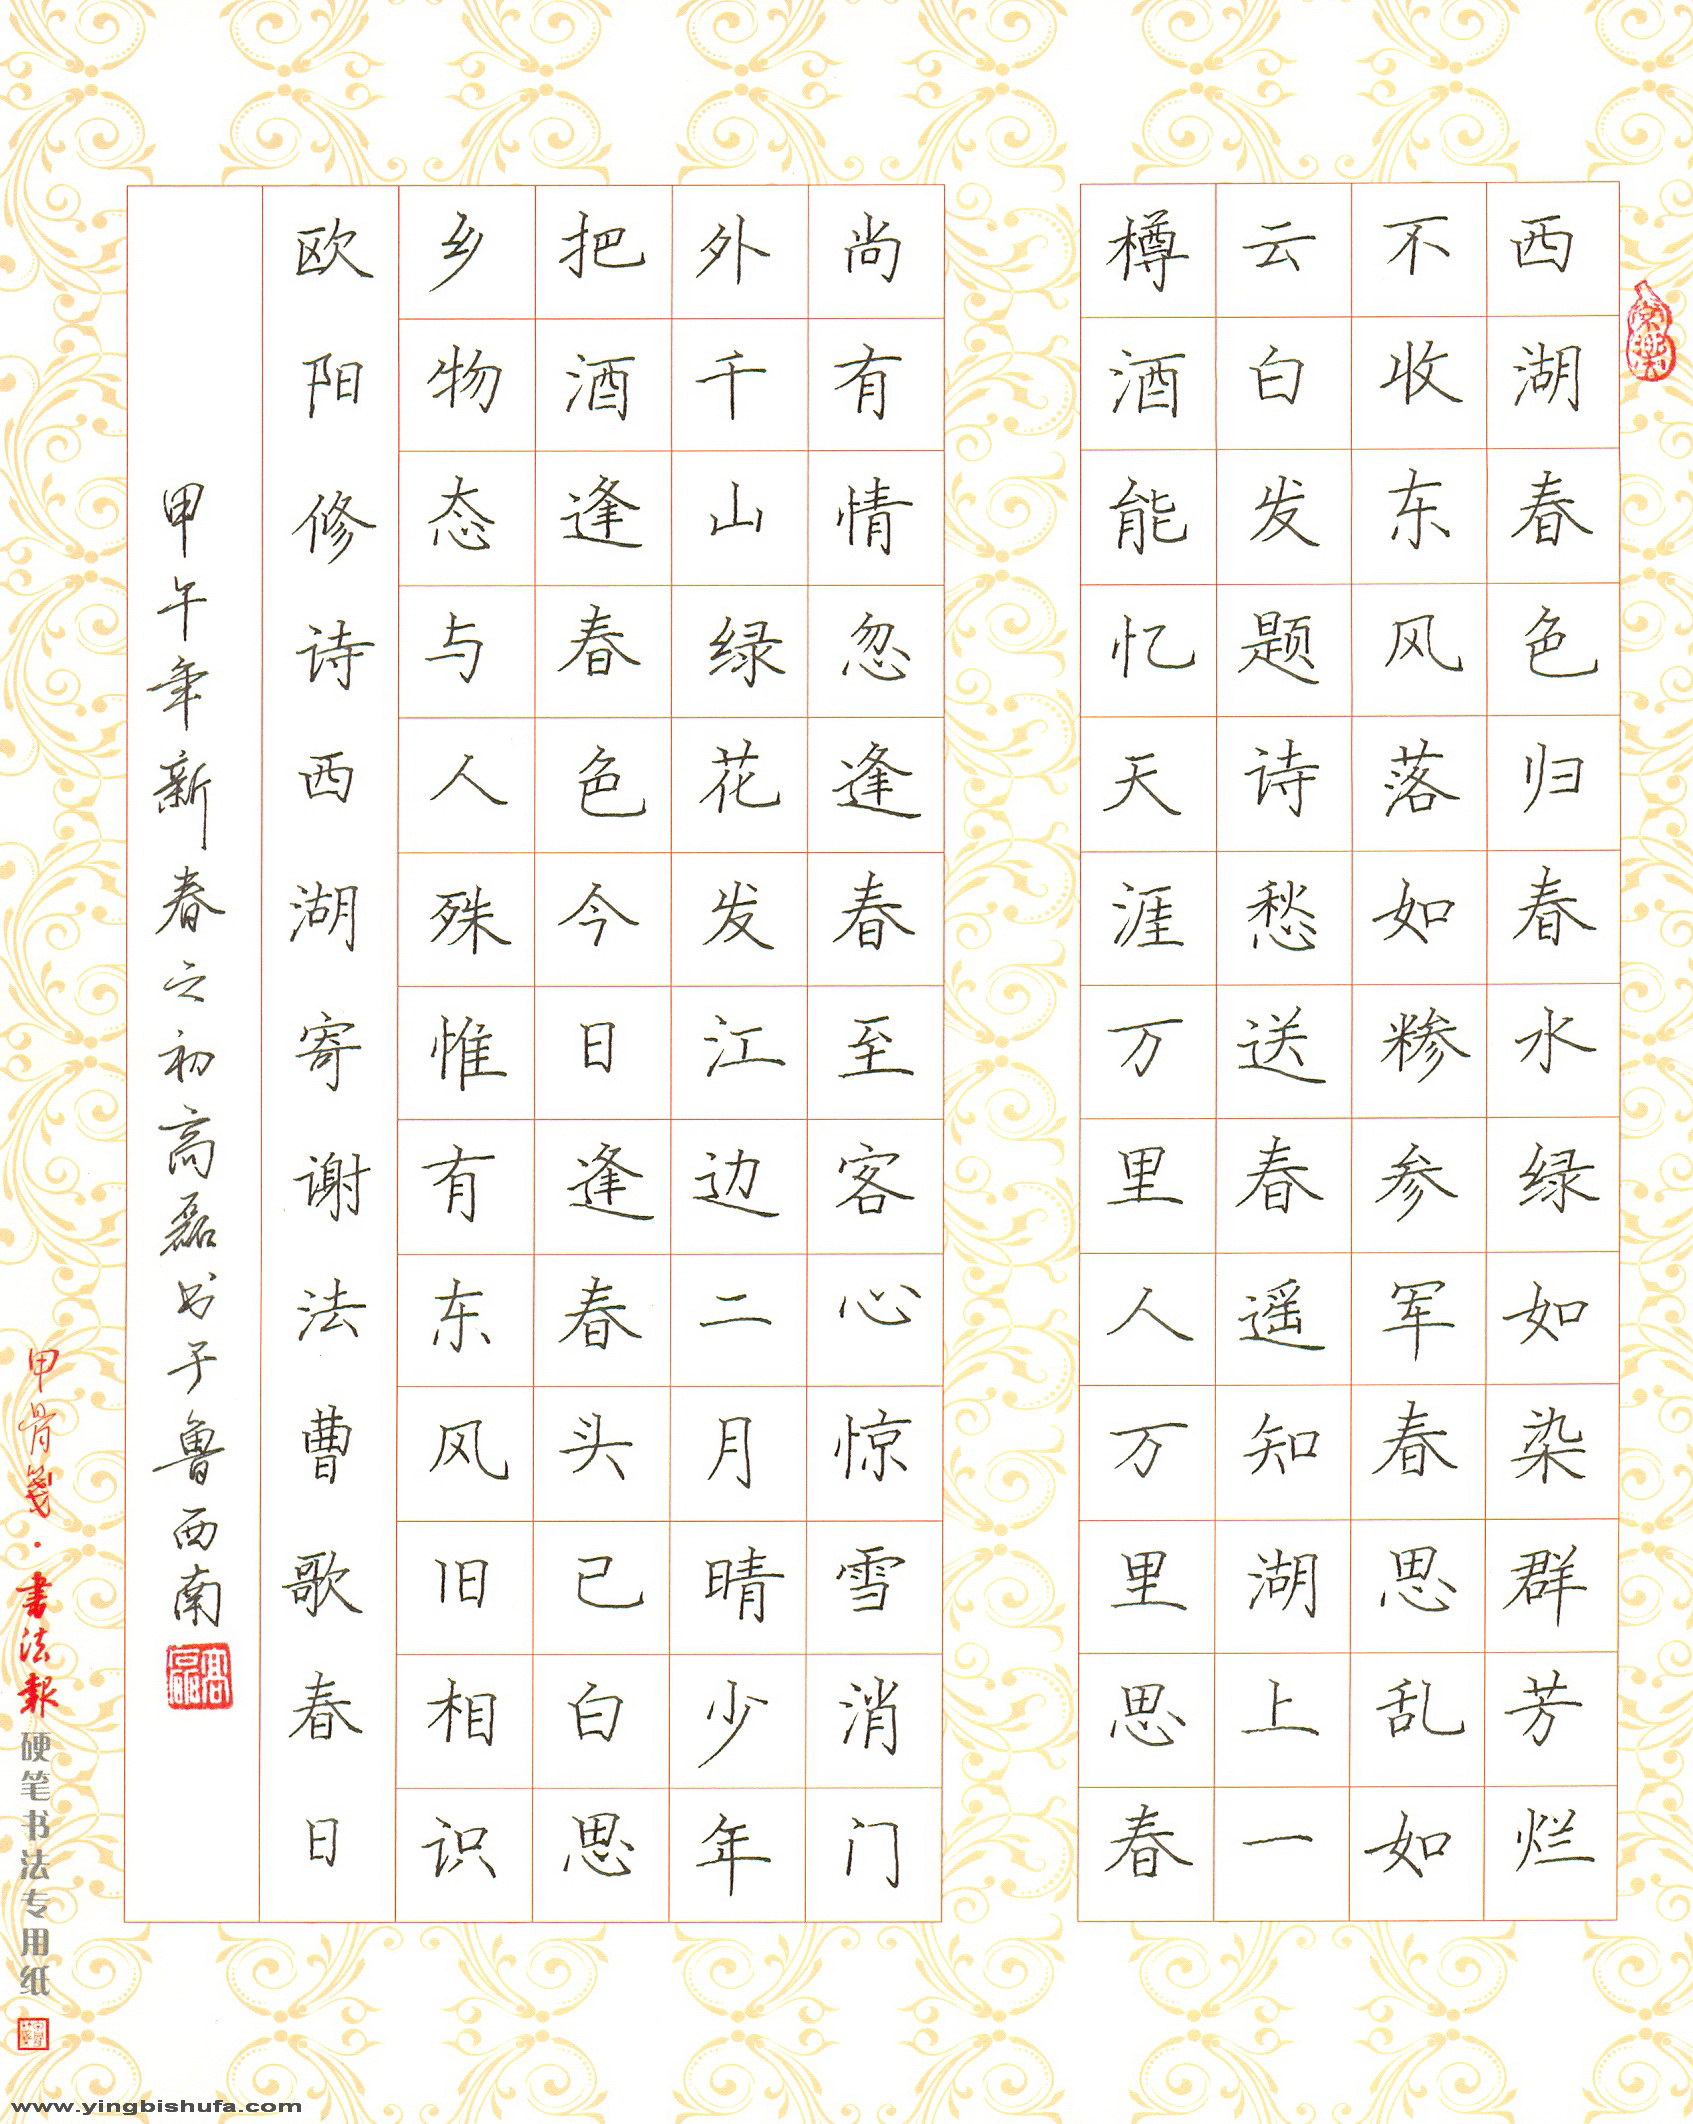 西湖春色归春水绿如染群芳烂
不收东风落如糁参军春思乱如
云白发题诗愁送春遥知湖上一
樽酒能忆天涯万里人万里思春
尚有情忽逢春至客心惊雪消门
外千山绿花发江边二月晴少年
把酒逢春色今日逢春头已白思
乡物态与人殊惟有东风旧相识
欧阳修诗西湖寄谢法曹歌春日
甲午年新春之初高磊书于鲁西南
甲骨笺·書法報硬笔书法专用纸
www.yingbishufa.com